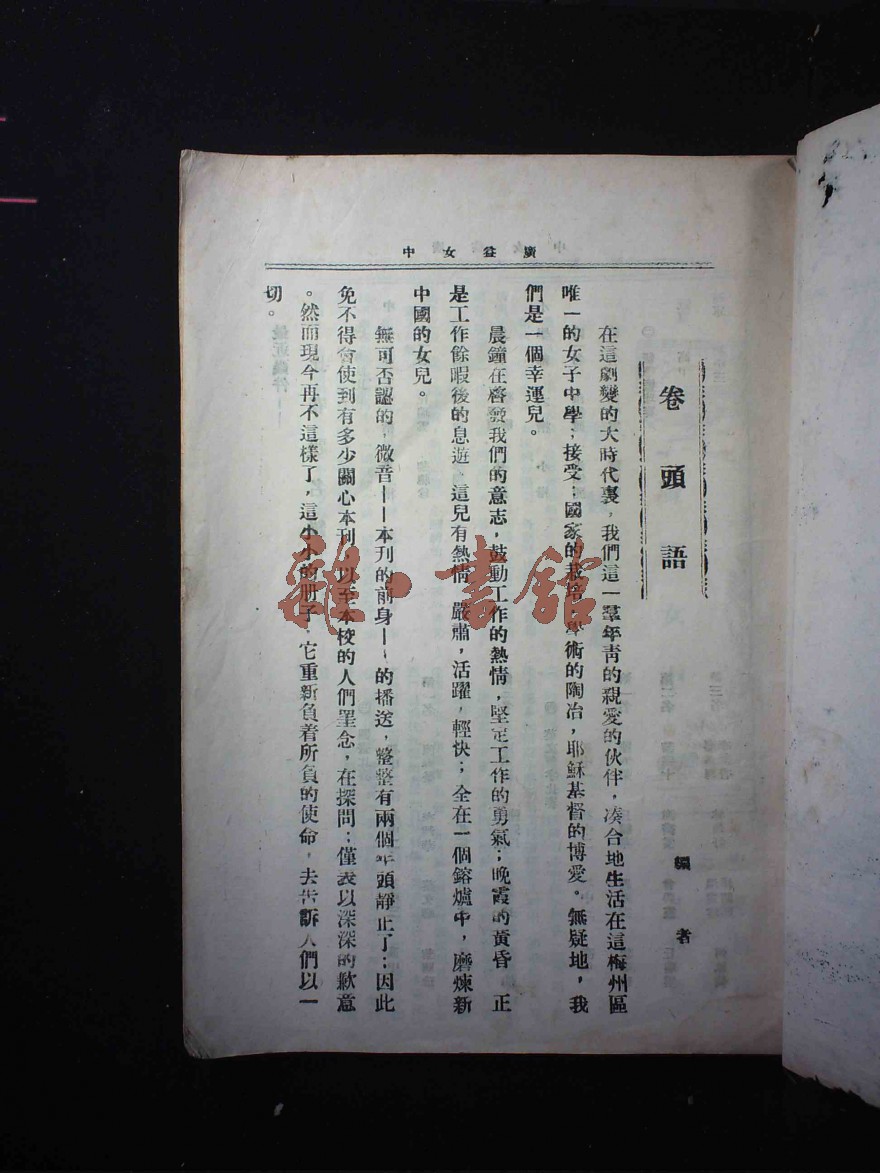 廣益女中
卷頭語
編者
在這劇變的大時代裏，我們這一羣年靑的親愛的伙伴，凑合地生活在這梅州區
唯一的女子中學；接受；國家的栽培，學術的陶冶，耶蘇基督的博愛。無疑地，我
們是一個幸運兒。
晨鐘在啓發我們的意志，鼓動工作的熱情，堅定工作的勇氣；晚霞的黃昏　正
是工作餘暇後的息遊　這兒有熱情　嚴肅，活躍，輕快；全在一個鎔爐中，磨煉新
中國的女兒。
無可否認的，微音——本刊的前身——的播送，整整有兩個年頭靜止了；因此
免不得會使到有多少關心本刊　以至本校的人們罣念，在探問；僅表以深深的歉意
。然而現今再不這樣了，這小小的册子，它重新負着所負的使命，去告訴人們以一
切。
雜·書館